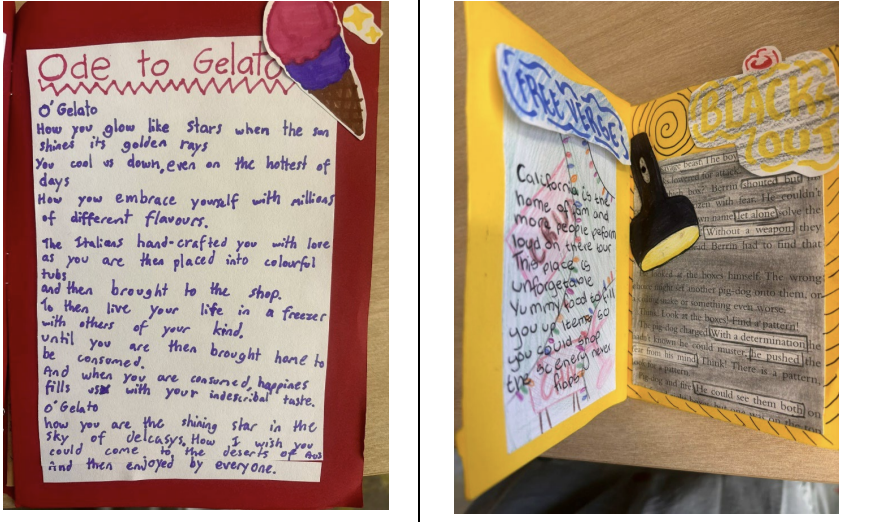 Ode to Gelato
O' Gelato
How you glow like stars when the son
shines its golden rays
You cool us down, even on the hottest of
days
How you embrace yourself with millions
of different flavours.
The Italians hand-crafted you with love
as you are then placed into colourful
tubs
and then brought to the shop.
To then live your life in a freezer
with others of your kind.
until you are then brought home to
be consumed.
And when you are consumed, happines
fills us with your indescribal taste.
O' Gelato
how you are the shining star in the
sky of delcasys. How I wish you
could come to the deserts of Aus
And then enjoyed by everyone.
FREE VERSE
California is the
home of and
more people peform
loud on there tour
This place is
unforgetable
Yummy food to fill
you up Items so
you could shop
the scenery never
flops!
BLACK
OUT
beast. The boy
for attack
box? Berrin shouted but
with fear. He couldn't
name let alone solve the
Without a weapon, they
Berrin had to find that
looked at the boxes himself. The wrong
might set another pig-dog onto them, or
snake or something even worse.
Think. Look at the boxes! Find a pattern!
The pig-dog charged. With a determination he
known he could muster, he pushed the
fear from his mind. Think! There is a pattern,
for a pattern.
Pig-dog and He could see them both on